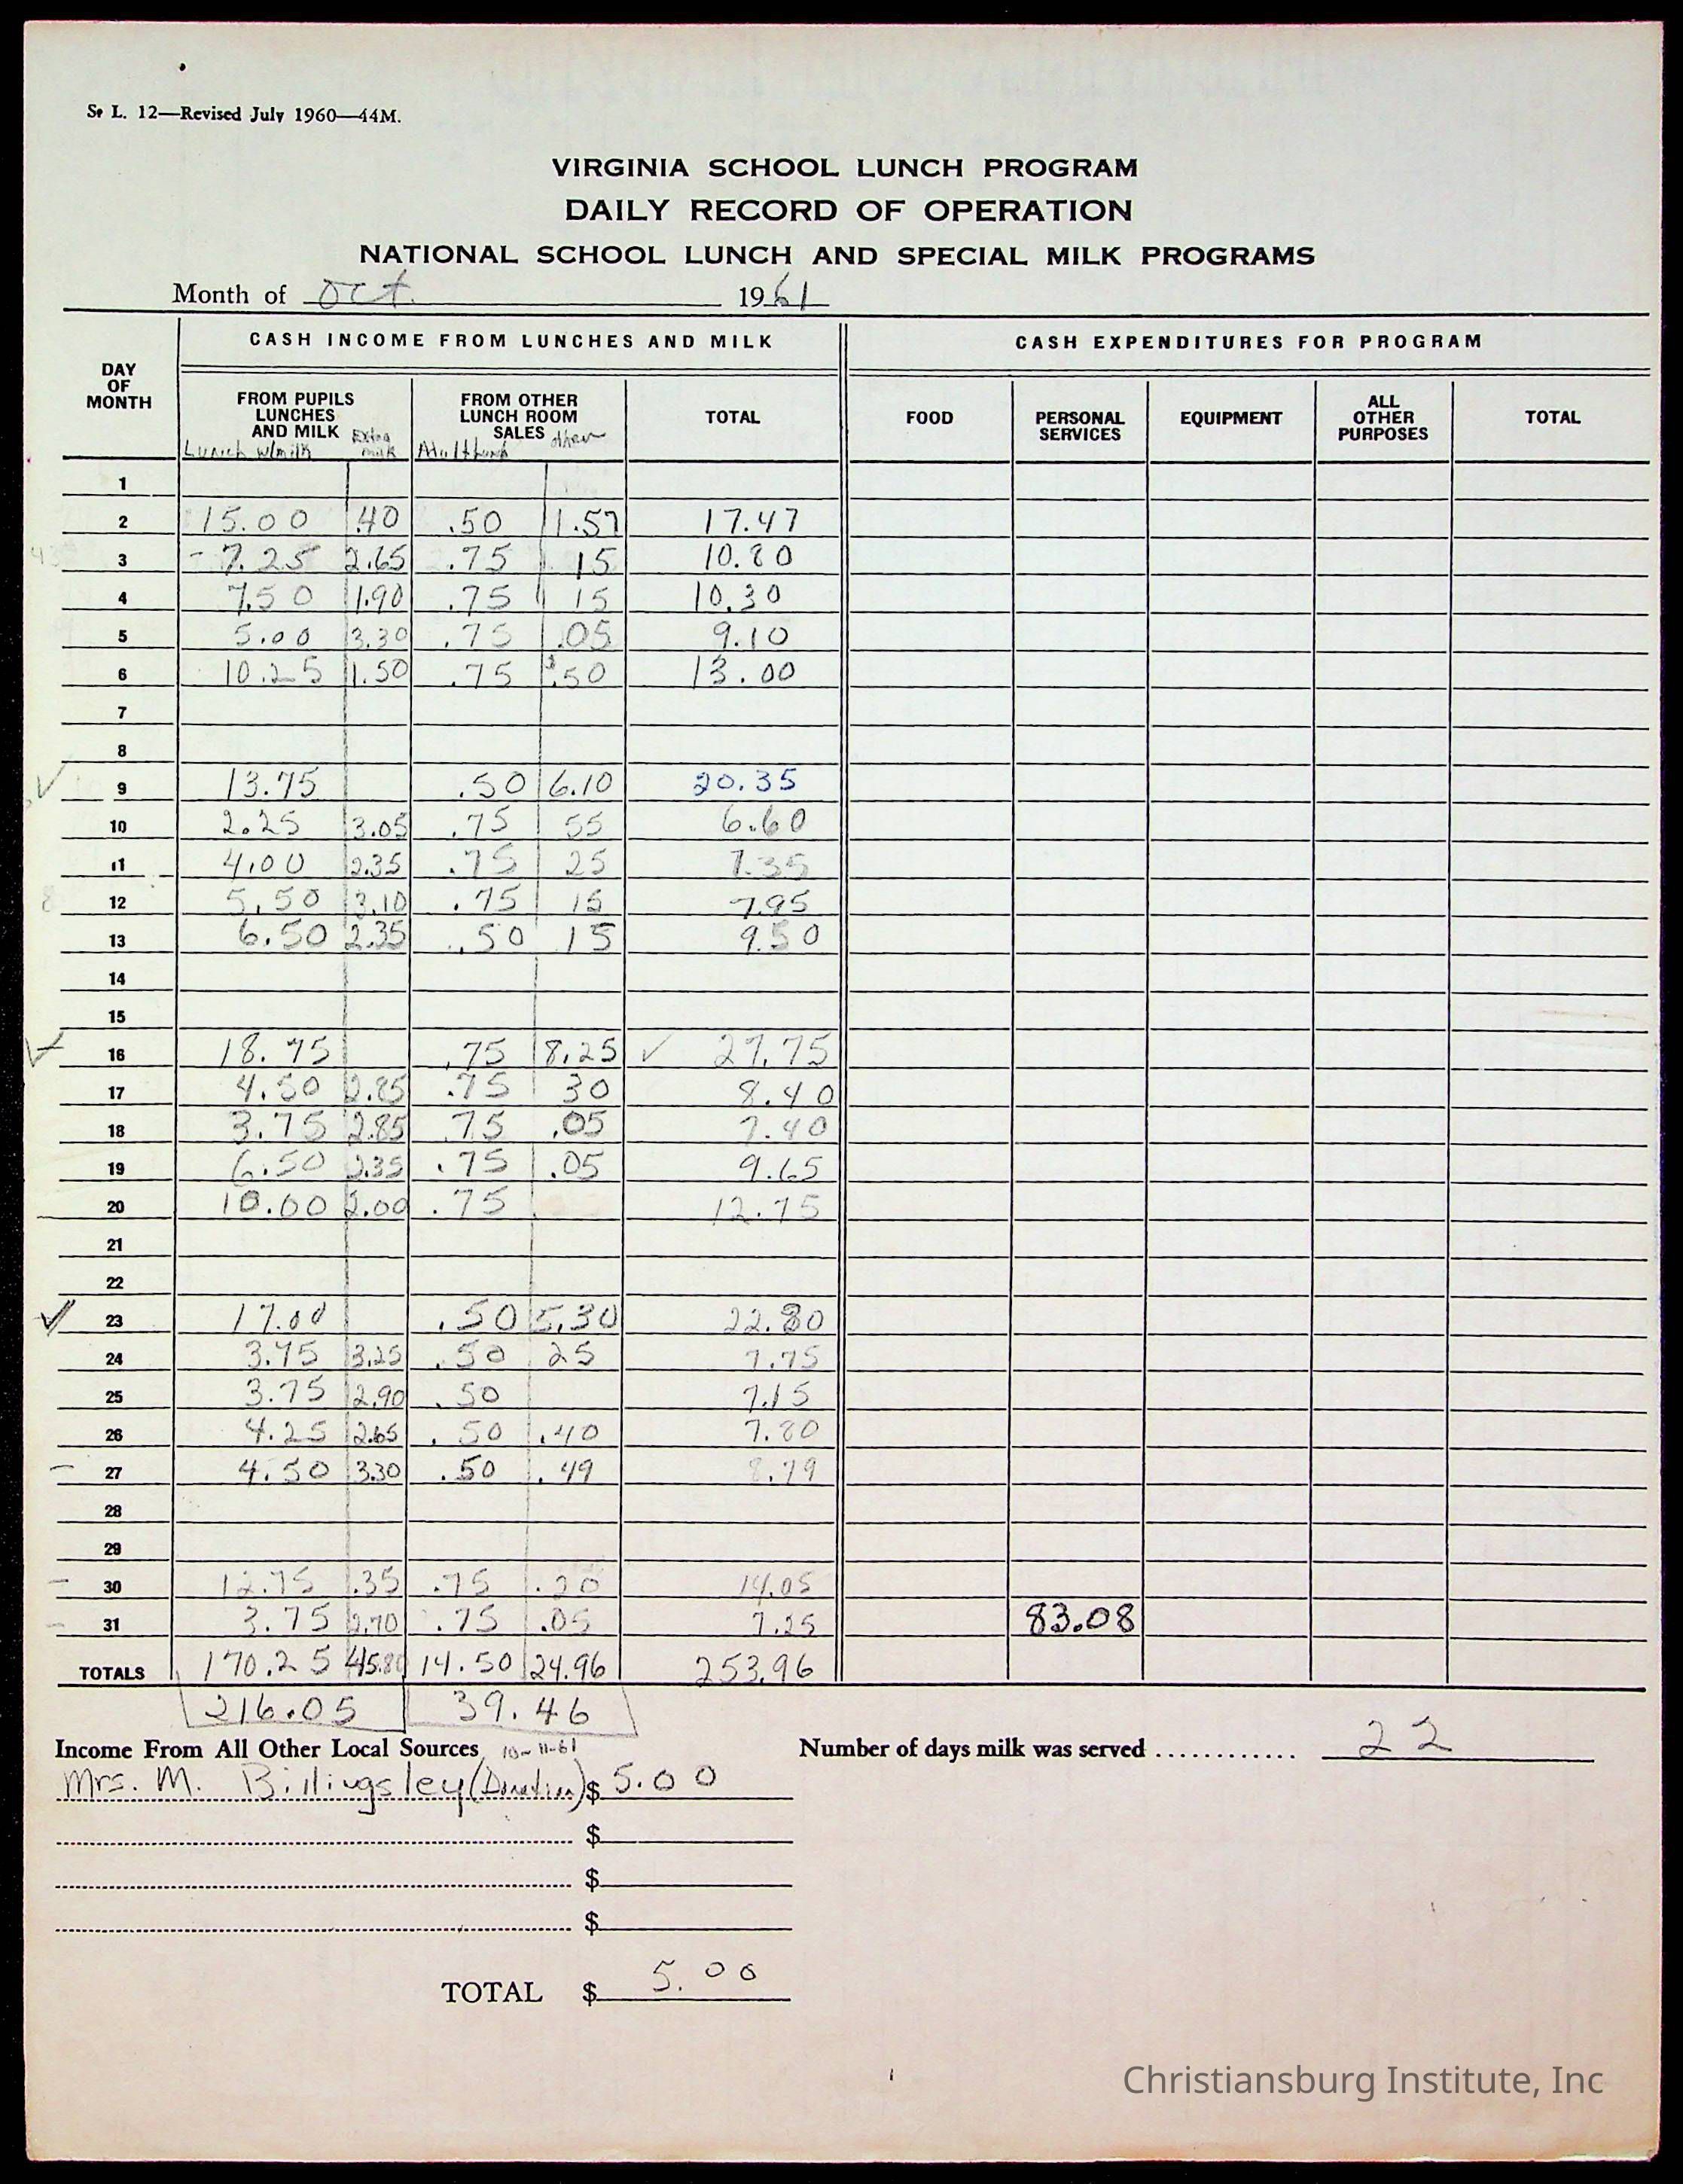 S. L. 12—Revised July 1960—44M.
VIRGINIA SCHOOL LUNCH PROGRAM
DAILY RECORD OF OPERATION
NATIONAL SCHOOL LUNCH AND SPECIAL MILK PROGRAMS
Month of Oct. 1961
CASH INCOME FROM LUNCHES AND MILK CASH EXPENDITURES FOR PROGRAM
DAY OF MONTH
FROM PUPILS LUNCHES AND MILK FROM OTHER LUNCH ROOM SALES TOTAL FOOD PERSONAL SERVICES EQUIPMENT ALL OTHER PURPOSES TOTAL
Lunch w/milk Extra milk Adult Lunch other
1
2 15.00 .40 .50 1.57 17.47
3 7.25 2.65 .75 15 10.80
4 7.50 1.90 .75 15 10.30
5 5.00 3.30 .75 .05 9.10
6 10.25 1.50 .75 .50 13.00
7
8
9 13.75 .50 6.10 20.35
10 2.25 3.05 .75 55 6.60
11 4.00 2.35 .75 25 7.35
12 5.50 3.10 .75 15 7.95
13 6.50 2.35 .50 15 9.50
14
15
16 18.75 .75 8.25 ✓ 27.75
17 4.50 2.85 .75 30 8.40
18 3.75 2.85 75 .05 7.40
19 6.50 2.35 .75 .05 9.65
20 10.00 2.00 .75 12.75
21
22
23 17.00 .50 5.30 22.80
24 3.75 3.25 .50 25 7.75
25 3.75 2.90 .50 7.15
26 4.25 2.65 .50 .40 7.80
27 4.50 3.30 .50 .49 8.79
28
29
30 12.75 .35 .75 .20 14.05
31 3.75 2.70 .75 .05 7.25 83.08
TOTALS 170.25 45.80 14.50 24.96 253.96
216.05 39.46
Income From All Other Local Sources 10-11-61 Number of days milk was served ............ 22
Mrs. M. Billingsley (Donation) $ 5.00
$
$
$
TOTAL $ 5.00
Christiansburg Institute, Inc